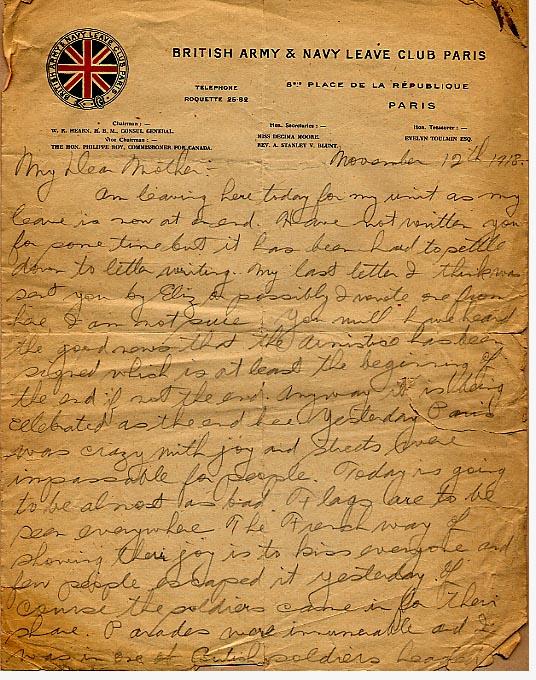 BRITISH ARMY & NAVY LEAVE CLUB PARIS
BRITISH ARMY & NAVY LEAVE CLUB PARIS
TELEPHONE
ROQUETTE 25-92
8 PLACE DE LA RÉPUBLIQUE
PARIS
Chairman :—
W. R. HEARN, H. B. M., CONSUL GENERAL.
Vice Chairman :—
THE HON. PHILIPPE ROY, COMMISSIONER FOR CANADA.
Hon. Secretaries :—
MISS DECIMA MOORE.
REV. A. STANLEY V. BLUNT.
Hon. Treasurer :—
EVELYN TOULMIN ESQ.
November 12th 1918.
My Dear Mother:-
Am leaving here today for my unit as my
leave is now at an end. Have not written you
for some time but it has been hard to settle
down to letter writing. My last letter I think was
sent you by Eliz or possibly I wrote one from
here, I am not sure. You will have heard
the good news that the armistice has been
signed which is at least the beginning of
the end if not the end. Anyway it is being
celebrated as the end here. Yesterday Paris
was crazy with joy and streets were
impassable for people. Today is going
to be almost as bad. Flags are to be
seen everywhere. The French way of
showing their joy is to kiss everyone and
few people escaped it yesterday. Of
course the soldiers came in for their
share. Parades were innumerable and I
was in one of soldiers